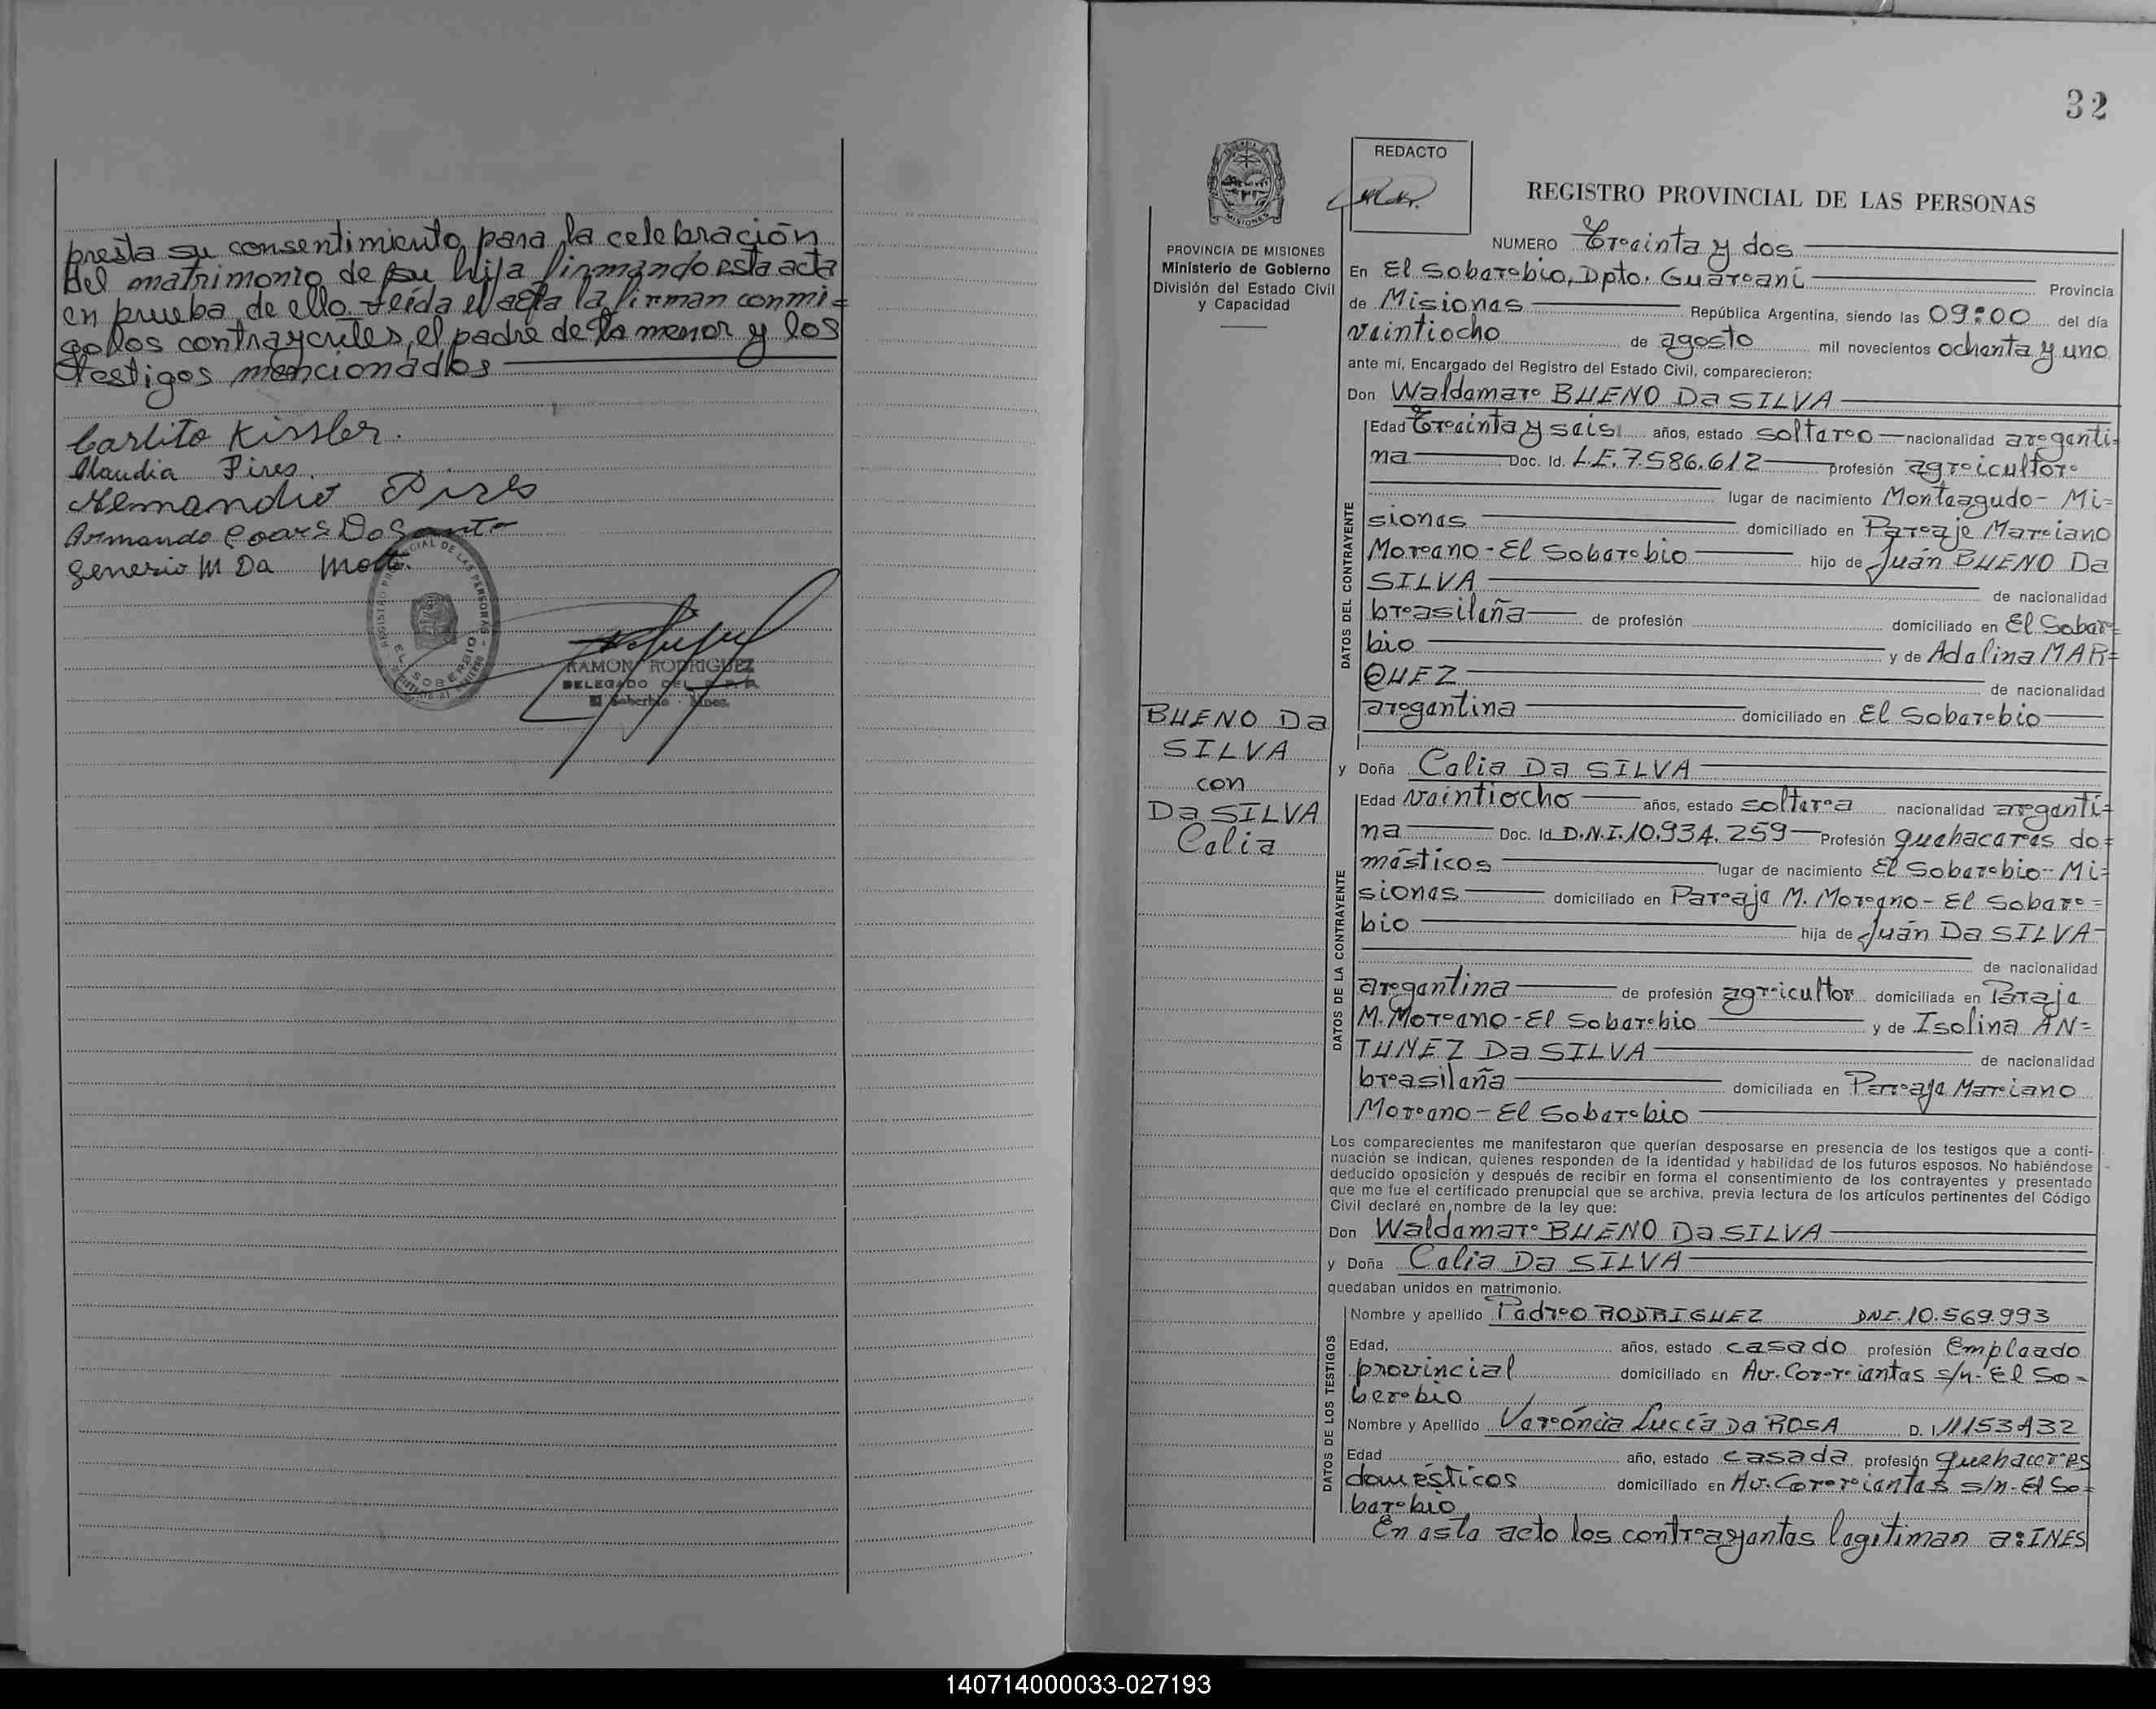 presta su consentimiento para la celebración
del matrimonio de su hija firmando esta acta
en prueba de ello. Leída el acta la firman conmi=
go los contrayentes, el padre de la menor y los
testigos mencionados
Carlito Kissler.
Claudia Pires
Armando Dos
Generio M Da Motta
REGISTRO PROVINCIAL DE LAS PERSONAS
EL SOBERBIO
RAMON RODRIGUEZ
DELEGADO DEL R.P.P.
El Soberbio - Mnes.
32
REDACTO
MISIONES
REGISTRO PROVINCIAL DE LAS PERSONAS
PROVINCIA DE MISIONES
Ministerio de Gobierno
División del Estado Civil
y Capacidad
NUMERO Treinta y dos
En El Soberbio, Dpto. Guaraní Provincia
de Misiones República Argentina, siendo las 09:00 del día
veintiocho de agosto mil novecientos ochenta y uno
ante mí, Encargado del Registro del Estado Civil, comparecieron:
Don Waldemar BUENO Da SILVA
Edad Treinta y seis años, estado soltero nacionalidad argenti=
na Doc. Id. L.E. 7.586.612 profesión agricultor
lugar de nacimiento Monteagudo - Mi=
siones domiciliado en Paraje Mariano
Moreno - El Soberbio hijo de Juán BUENO Da
SILVA de nacionalidad
brasileña de profesión domiciliado en El Sober=
bio y de Adelina MAR=
QUEZ de nacionalidad
argentina domiciliado en El Soberbio
BUENO Da
SILVA
con
Da SILVA
Celia
y Doña Celia Da SILVA
Edad Veintiocho años, estado soltera nacionalidad argenti=
na Doc. Id D.N.I. 10.934.259 Profesión quehaceres do=
mésticos lugar de nacimiento El Soberbio - Mi=
siones domiciliado en Paraje M. Moreno - El Sober=
bio hija de Juán Da SILVA
de nacionalidad
argentina de profesión agricultor domiciliada en Paraje
M. Moreno - El Soberbio y de Isolina AN=
TUNEZ Da SILVA de nacionalidad
brasileña domiciliada en Paraje Mariano
Moreno - El Soberbio
DATOS DEL CONTRAYENTE
DATOS DE LA CONTRAYENTE
Los comparecientes me manifestaron que querían desposarse en presencia de los testigos que a conti-
nuación se indican, quienes responden de la identidad y habilidad de los futuros esposos. No habiéndose
deducido oposición y después de recibir en forma el consentimiento de los contrayentes y presentado
que me fue el certificado prenupcial que se archiva, previa lectura de los artículos pertinentes del Código
Civil declaré en nombre de la ley que:
Don Waldemar BUENO Da SILVA
y Doña Celia Da SILVA
quedaban unidos en matrimonio.
DATOS DE LOS TESTIGOS
Nombre y apellido Pedro RODRIGUEZ DNI. 10.569.993
Edad, años, estado casado profesión Empleado
provincial domiciliado en Av. Corrientes s/n - El So=
berbio
Nombre y Apellido Verónica Lucía Da ROSA D. I. 11153432
Edad año, estado casada profesión quehaceres
domésticos domiciliado en Av. Corrientes s/n - El So=
berbio
En este acto los contrayentes legitiman a: INES
140714000033-027193